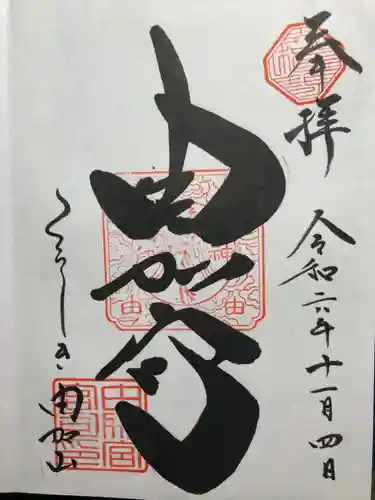 奉拝
令和六年十一月四日
由加宮
くらしき 由加山